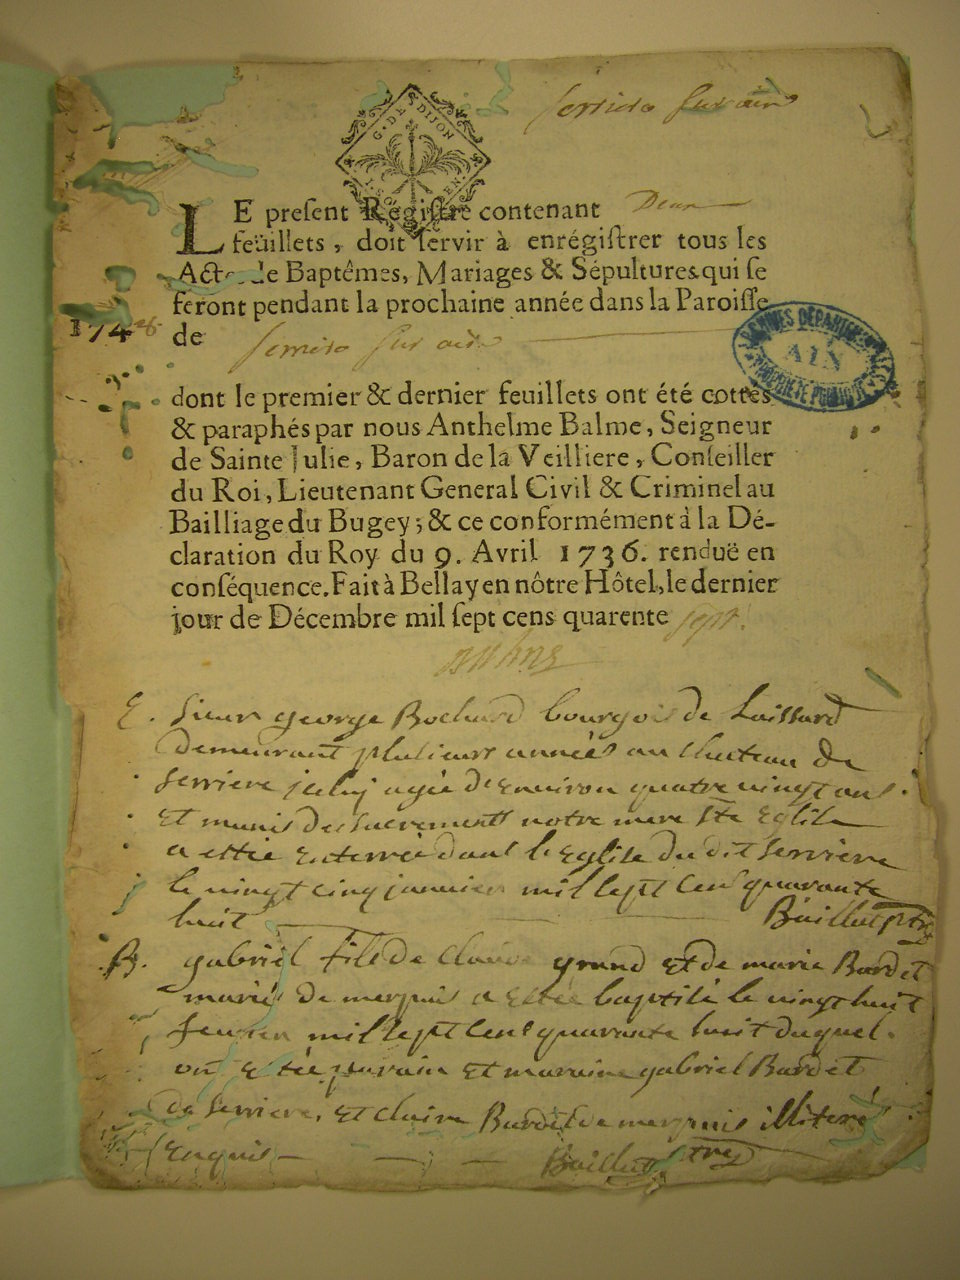 serriere sur ain
G. DE DIJON
LE present Régistre contenant Deux
feüillets, doit servir à enrégistrer tous les
Actes de Baptêmes, Mariages & Sépultures qui se
feront pendant la prochaine année dans la Paroisse
174
de serriere sur ain
ARCHIVES DÉPARTEMENTALES
AIN
PROPRIÉTÉ PUBLIQUE
dont le premier & dernier feuillets ont été cottés
& paraphés par nous Anthelme Balme, Seigneur
de Sainte Julie, Baron de la Veilliere, Conseiller
du Roi, Lieutenant General Civil & Criminel au
Bailliage du Bugey; & ce conformément à la Dé-
claration du Roy du 9. Avril 1736. renduë en
conséquence. Fait à Bellay en nôtre Hôtel, le dernier
jour de Décembre mil sept cens quarente sept.
Balme
E. Sieur george Bochard bourgois de Laissard
demeurant plusieurs années au chateau de
serriere agée d'environ quatre vingt ans
et munis des sacrements notre mere Ste Eglise
a estée enterrée dans l'Eglise du dit serriere
le vingt cinq janvier mil sept cens quarante
huit Baillat ptre
B. gabriel fils de Claude grand et de marie Bardet
mariés de merpuis a estée baptisé le vingt huit
fevrier mil sept cens quarante huit duquel
ont estée parain et maraine gabriel Bardet
de serriere, et claire Bardet de merpuis illiteré
Enquis Baillat ptre